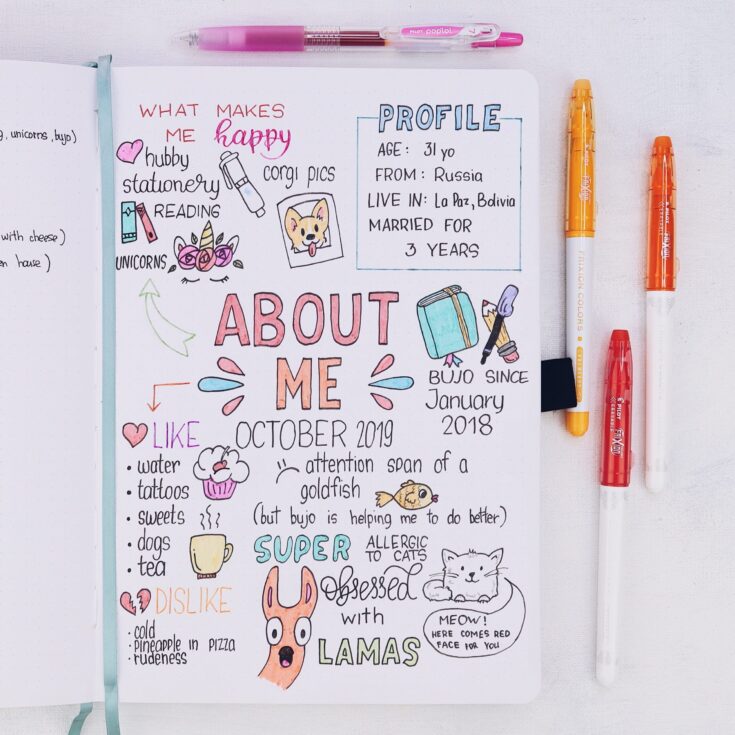 g, unicorns, bujo)
with cheese)
house)
WHAT MAKES
ME happy
hubby
stationery
READING
UNICORNS
corgi pics
PROFILE
AGE: 31 yo
FROM: Russia
LIVE IN: La Paz, Bolivia
MARRIED FOR
3 YEARS
ABOUT
ME
BUJO SINCE
January
2018
OCTOBER 2019
LIKE
• water
• tattoos
• sweets
• dogs
• tea
DISLIKE
• cold
• pineapple in pizza
• rudeness
attention span of a
goldfish
(but bujo is helping me to do better)
SUPER ALLERGIC
TO CATS
obsessed
with
LAMAS
MEOW!
HERE COMES RED
FACE FOR YOU
PILOT
FRIXION COLORS
PILOT
FRIXION
PILOT
FRIXION